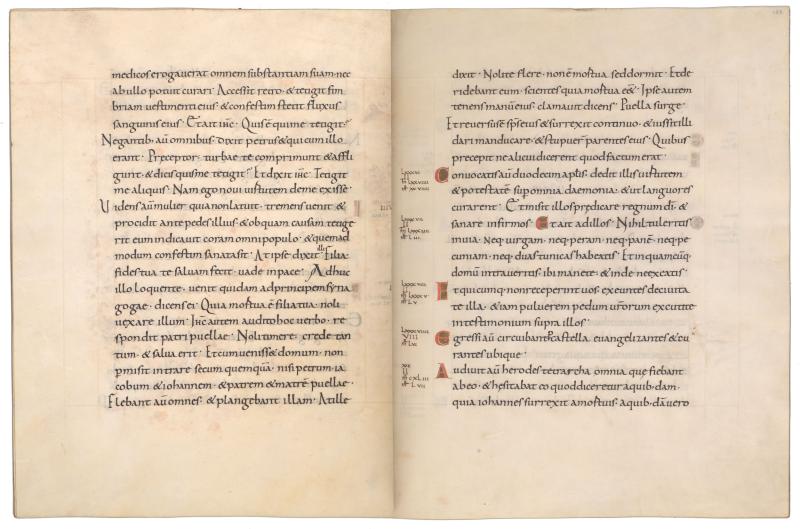 medicos erogaverat omnem substantiam suam· nec
ab ullo potuit curari· Accessit retro· & tetigit fim
briam vestimenti eius· & confestim stetit fluxus
sanguinis eius· Et ait ihc̄· Quis ē qui me tetigit?
Negantib· aū omnibus· dixit petrus & qui cum illo
erant· Preceptor· turbae te comprimunt & affli
gunt· & dicis quis me tetigit? Et dixit ihc̄· Tetigit
me aliquis· Nam ego novi virtutem de me exisse·
Videns aū mulier quia non latuit· tremens venit &
procidit ante pedes illius· & ob quam causam tetige
rit eum indicavit coram omni populo· & quemad
modum confestim sanata sit· At ipse dixit illi· Filia·
fides tua te salvam fecit· vade in pace· Adhuc
illo loquente· venit quidam ad principem syna
gogae· dicens ei· Quia mortua ē filia tua· noli
vexare illum· Ihc̄ autem audito hoc verbo· re
spondit patri puellae· Noli timere· crede tan
tum· & salva erit· Et cum venisset domum· non
pmisit intrare secum quemquā· nisi petrum· ia
cobum & iohannem· & patrem & matrē puellae·
Flebant aū omnes· & plangebant illam· At ille
dixit· Nolite flere· non ē mortua sed dormit· Et de
ridebant eum· scientes quia mortua eēt· Ipse autem
tenens manū eius· clamavit dicens· Puella surge·
Et reversus ē sps̄ eius & surrexit continuo· & iussit illi
dari manducare· & stupuer̄ parentes eius· Quibus
precepit ne alicui dicerent quod factum erat·
Convocatis aū duodecim apl̄is· dedit illis virtutem
& potestatē super omnia daemonia· & ut languores
curarent· Et misit illos predicare regnum dī· &
sanare infirmos· Et ait ad illos· Nihil tuleritis
in via· neq· virgam· neq· peram· neq· panē· neq· pe
cuniam· neq· duas tunicas habeatis· Et in quamcūq·
domū intraveritis· ibi manete· & inde ne exeatis·
Et quicumq· non receperint vos· exeuntes de civita
te illa· & iam pulverem pedum vr̄orum excutite
in testimonium supra illos·
Egressi aū circuibant p castella· evangelizantes & cu
rantes ubique·
Audivit aū herodes tetrarcha omnia que fiebant
ab eo· & hesitabat eo quod diceretur a quib·dam·
quia iohannes surrexit a mortuis· a quib·dā vero